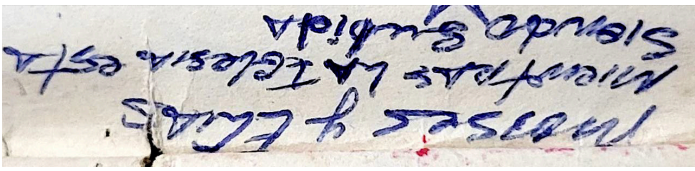 Moises y Elias
Mientras la Iglesia esta
Siendo Subida